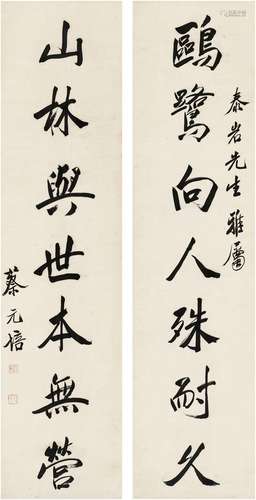 泰岩先生雅屬
鷗鷺向人殊耐久
山林與世本無營
蔡元培